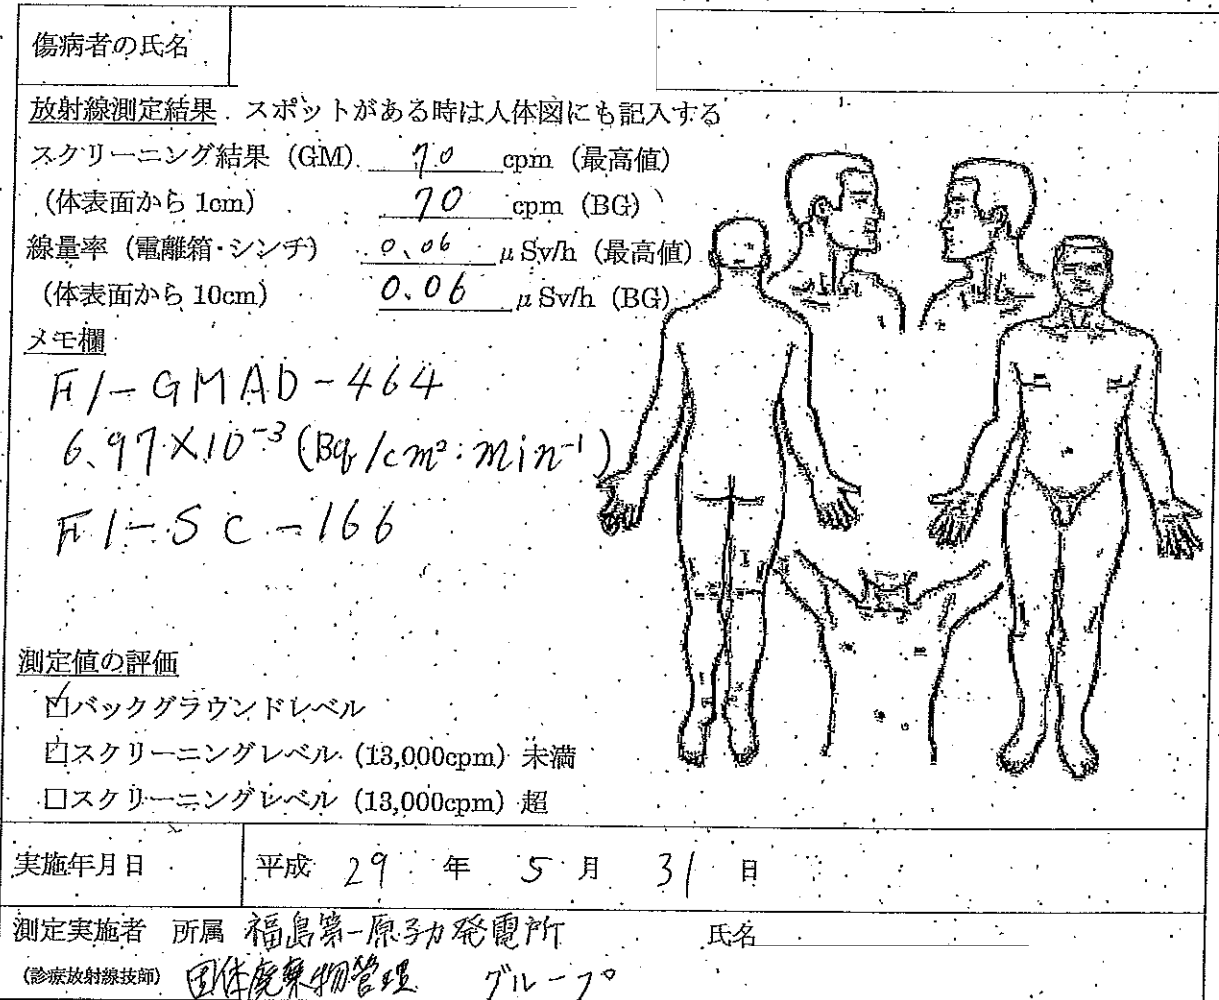 傷病者の氏名
放射線測定結果 スポットがある時は人体図にも記入する
スクリーニング結果（GM） 70 cpm（最高値）
（体表面から 1cm） 70 cpm（BG）
線量率（電離箱・シンチ） 0.06 μSv/h（最高値）
（体表面から 10cm） 0.06 μSv/h（BG）
メモ欄
F1-GMAD-464
6.97×10⁻³(Bq/cm²·min⁻¹)
F1-SC-166
測定値の評価
☑バックグラウンドレベル
□スクリーニングレベル（13,000cpm）未満
□スクリーニングレベル（13,000cpm）超
実施年月日 平成 29 年 5 月 31 日
測定実施者 所属 福島第一原子力発電所 氏名
（診療放射線技師） 固体廃棄物管理 グループ